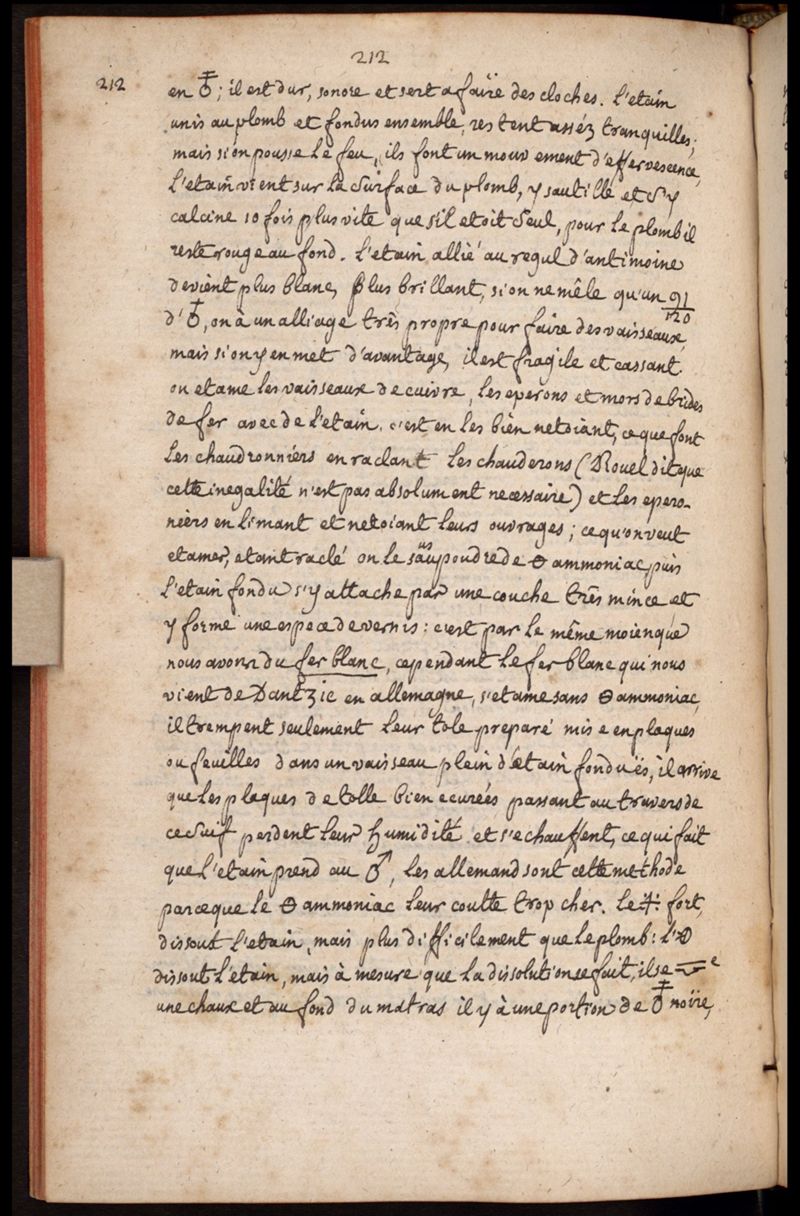 212
212
en ♁; il est dur, sonore et sert a faire des cloches. L'etain
unis au plomb et fondus ensemble, restent asséz tranquilles;
mais si on pousse le feu, ils font un mouvement d'effervescence,
l'etain vient sur la surface du plomb, y sautille et s'y
calcine 10 fois plus vite que s'il etoit seul, pour le plomb il
reste rouge au fond. L'etain allié au regul d'antimoine
devient plus blanc, plus brillant, si on ne mêle qu'un
d'♁, on à un alliage très propre pour faire des vaisseaux,
mais si on y en met d'avantage, il est fragile et cassant.
on etame les vaisseaux de cuivre, les eperons et mors de brides
de fer avec de l'etain. c'est en les bien netoiant, ce que font
les chaudronniers en raclant les chauderons (Rouel dit que
cette inegalité n'est pas absolument necessaire) et les epero-
niers en limant et netoiant leurs ouvrages; ce qu'on veut
etamer, etant raclé on le saupoudre de 🜔 ammoniac, puis
l'etain fondu s'y attache par une couche très mince et
y forme une espece de vernis: c'est par le même moien que
nous avons du fer blanc, cependant le fer blanc qui nous
vient de Dantzic en allemagne, s'etame sans 🜔 ammoniac,
il trempent seulement leur tole preparé mise en plaques
ou feuilles dans un vaisseau plein d'etain fondu, il arrive
que les plaques de tolle bien ecurées passant au travers de
ce suif perdent leur humidité et s'echauffent, ce qui fait
que l'etain prend au ♂, les allemands ont cette methode
parceque le 🜔 ammoniac leur coutte trop cher. Le fort,
dissout l'etain, mais plus difficilement que le plomb: l'
dissout l'etain, mais à mesure que la dissolution se fait, il se
une chaux et au fond du matras il y à une portion de ♁ noire,